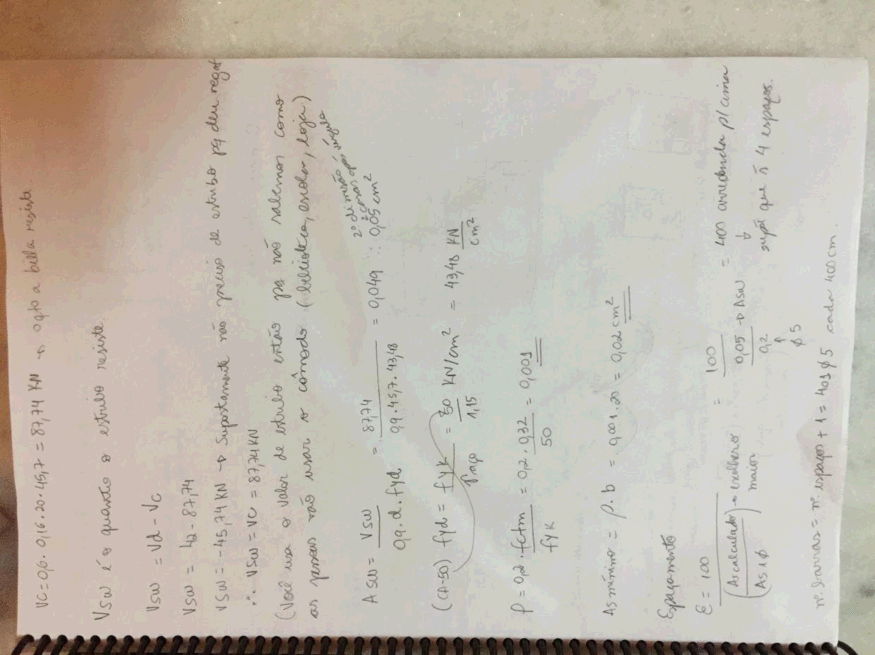 Vc = 0,6 . 0,16 . 20 . 45,7 = 87,74 KN → oqto a biela resiste.
Vsw é o quanto o estribo resiste.
Vsw = Vd - Vc
Vsw = 42 - 87,74
Vsw = -45,74 KN → Supostamente não preciso de estribo pq deu negat
∴ Vsw = Vc = 87,74 KN
(Você usa o valor de estribo então pq não sabemos como
as pessoas vão usar o cômodo (biblioteca, escolar, loja)
Asw = Vsw / 0,9 . d . fyd = 87,74 / 0,9 . 45,7 . 43,48 = 0,049 ∴ 0,05 cm²
(CA-50) fyd = fyk / γaço = 50 KN/cm² / 1,15 = 43,48 KN/cm²
ρ = 0,2 . fctm / fyk = 0,2 . 0,32 / 50 = 0,001
As mínimo = ρ . b = 0,001 . 20 = 0,02 cm²
Espaçamento
E = 100 / (As calculado / As 1 ϕ) → escolhe o maior = 100 / (0,05 → Asw / 0,2 ↑ ϕ 5) = 400 arredonda p/ cima
↓
supõe que é 4 espaços.
nº. barras = nº. espaços + 1 = 401 ϕ 5 cada 400 cm.